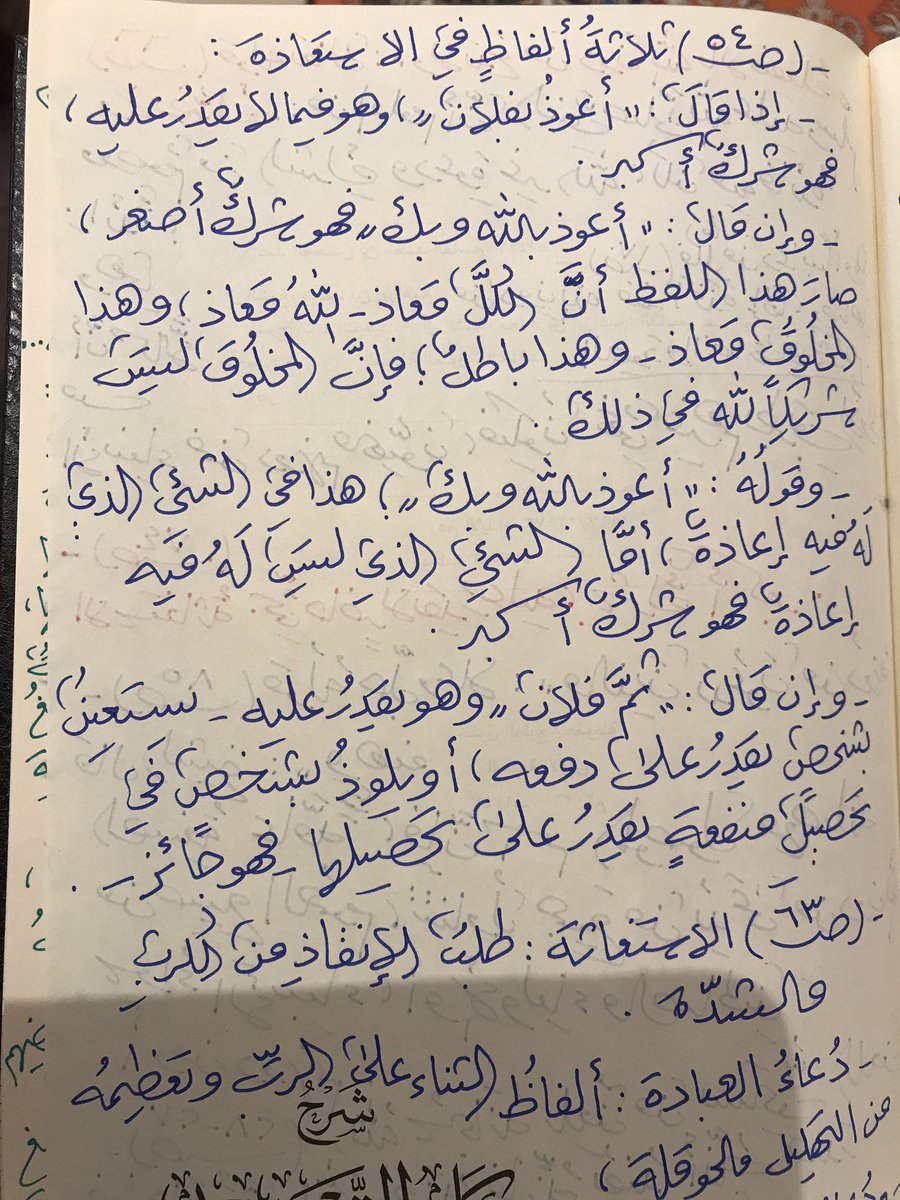 - (صـ٥٤) ثلاثةُ ألفاظٍ في الاستعاذة :
- إذا قالَ : "أعوذُ بفلان"، وهو فيما لا يقدِرُ عليه،
فهو شركٌ أكبر.
- وإن قال : "أعوذ بالله وبك" فهو شركٌ أصغر،
صارَ هذا اللفظ أنَّ الكُلَّ مَعاذ - اللهُ مَعاذ، وهذا
المخلُوقُ مَعاذ - وهذا باطلٌ؛ فإنَّ المخلُوقَ ليسَ
شريكاً لله في ذلك.
- وقولُهُ : "أعوذ بالله وبك"، هذا في الشيْ الذي
لَهُ فيه إعاذةٌ، أمَّا الشيْ الذي ليسَ لَهُ فيه
إعاذةٌ فهو شركٌ أكبر.
- وإن قال : "ثمَّ فلان" وهو يقدِرُ عليه - يستعينُ
بشخصٍ يقدِرُ على دفعه، أو يلوذُ بشخصٍ في
تحصيلِ منفعةٍ يقدِرُ على تحصيلها - فهو جائز.
- (صـ٦٣) الاستغاثة : طلبُ الإنقاذِ من الكُربِ
والشدّة.
- دُعاءُ العبادة : ألفاظُ الثناء على الربِّ وتعظيمُه
من التهليل والحوقلة،
شَرْحُ